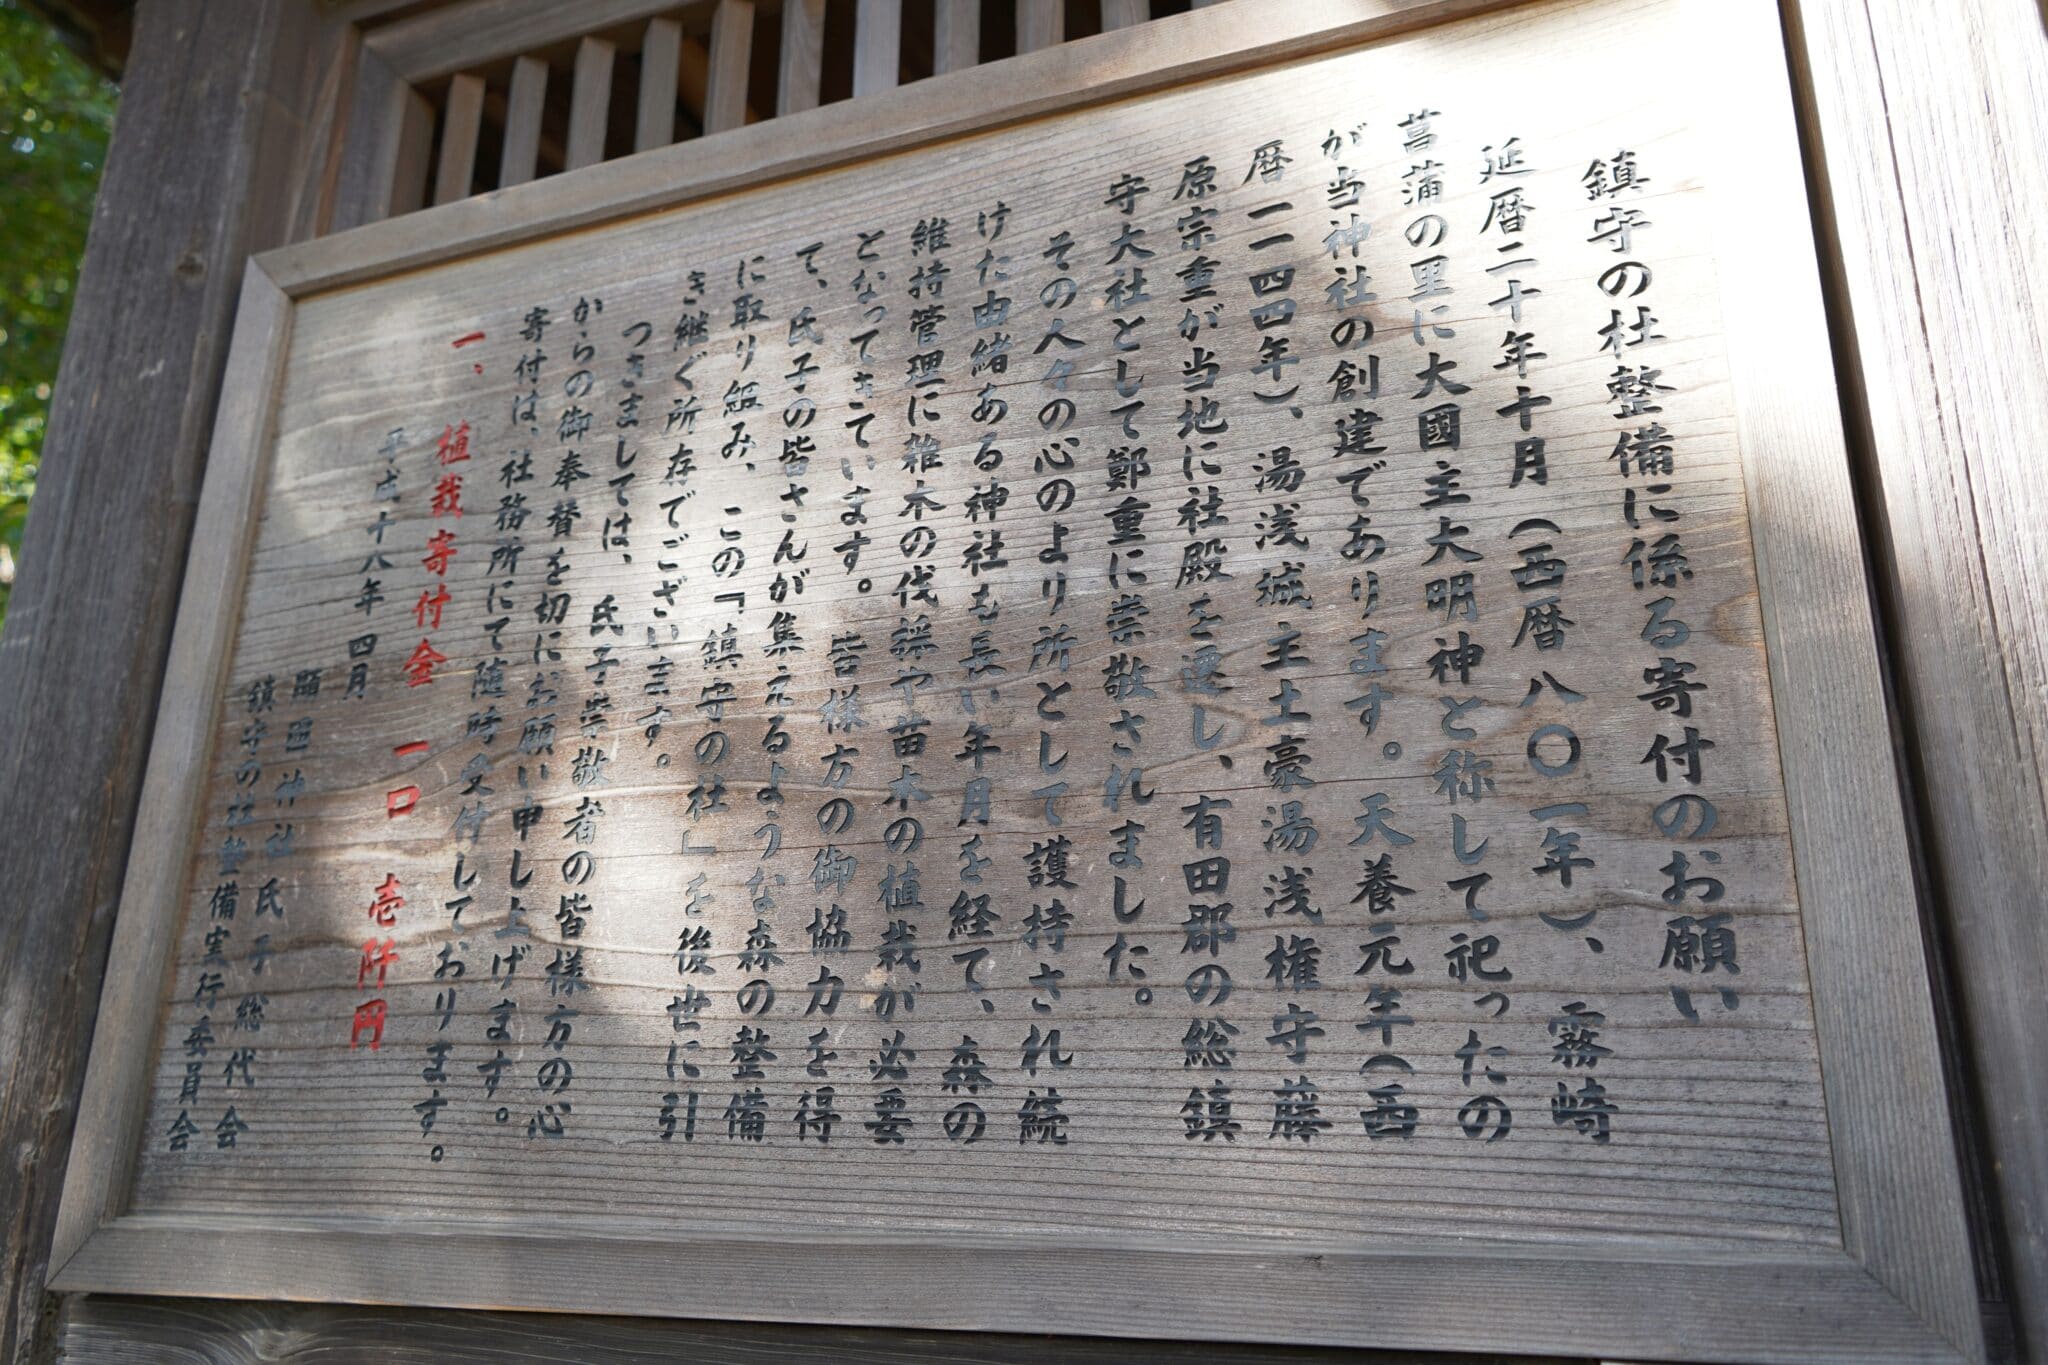 鎮守の杜整備に係る寄付のお願い
延暦二十年十月(西暦八〇一年)、霧崎
菖蒲の里に大國主大明神と称して祀ったの
が当神社の創建であります。天養元年(西
暦一一四四年)、湯浅城主土豪湯浅権守藤
原宗重が当地に社殿を遷し、有田郡の総鎮
守大社として鄭重に崇敬されました。
その人々の心のより所として護持され続
けた由緒ある神社も長い年月を経て、森の
維持管理に雑木の伐採や苗木の植栽が必要
となってきています。皆様方の御協力を得
て、氏子の皆さんが集えるような森の整備
に取り組み、この「鎮守の杜」を後世に引
き継ぐ所存でございます。
つきましては、氏子崇敬者の皆様方の心
からの御奉賛を切にお願い申し上げます。
寄付は、社務所にて随時受付しております。
一、植栽寄付金 一口 壱阡円
平成十八年四月
顯國神社氏子総代会
鎮守の杜整備実行委員会